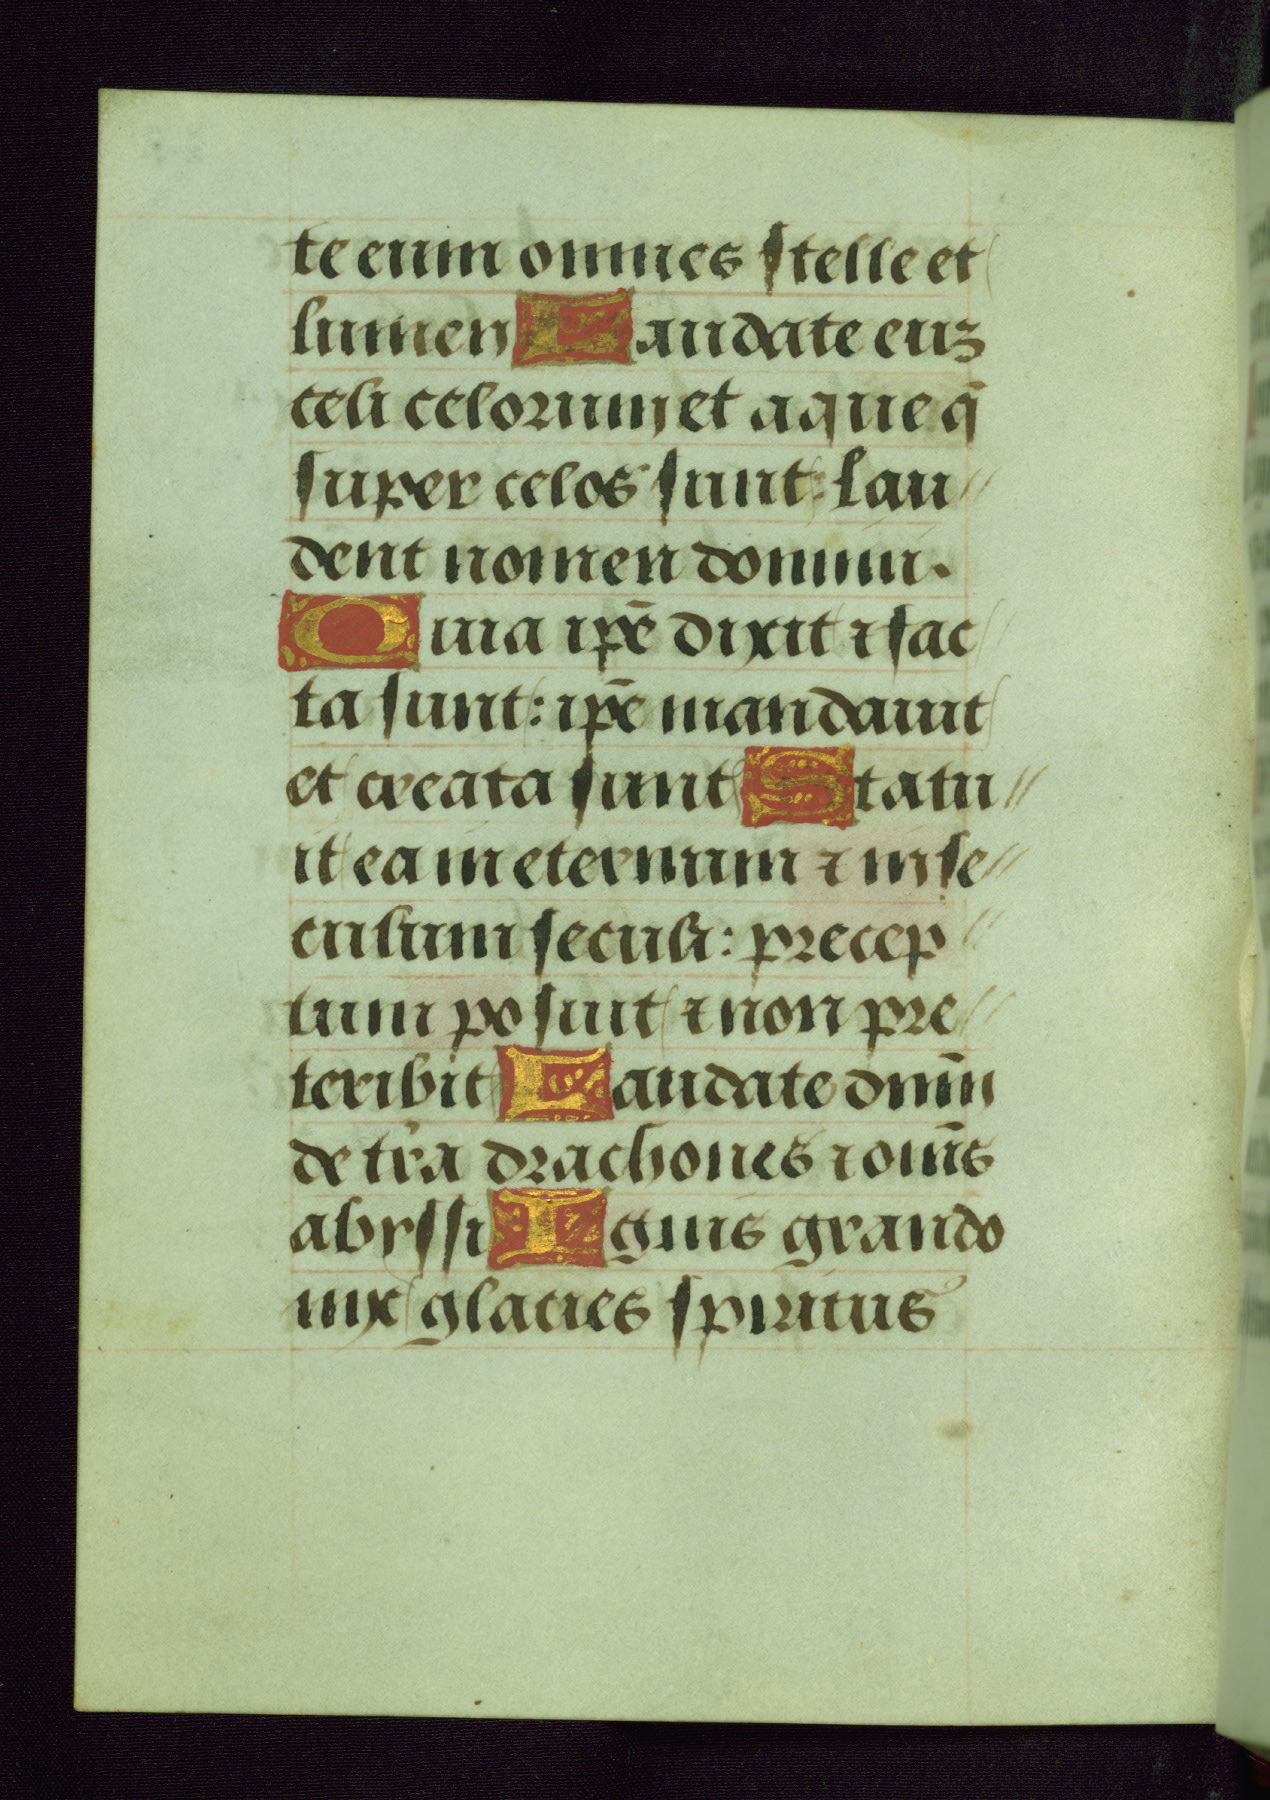 te eum omnes stelle et
lumen Laudate euʒ
celi celorum et aque q̄
super celos sunt: lau//
dent nomen domini.
Quia ip̄e dixit ⁊ fac
ta sunt: ip̄e mandauit
et creata sunt Statu//
it ea in eternum ⁊ in se//
culum seculi: precep//
tum posuit ⁊ non pre//
teribit Laudate dnm̄
de tr̄a drachones ⁊ om̄s
abyssi Ignis grando
nix glacies spiritus